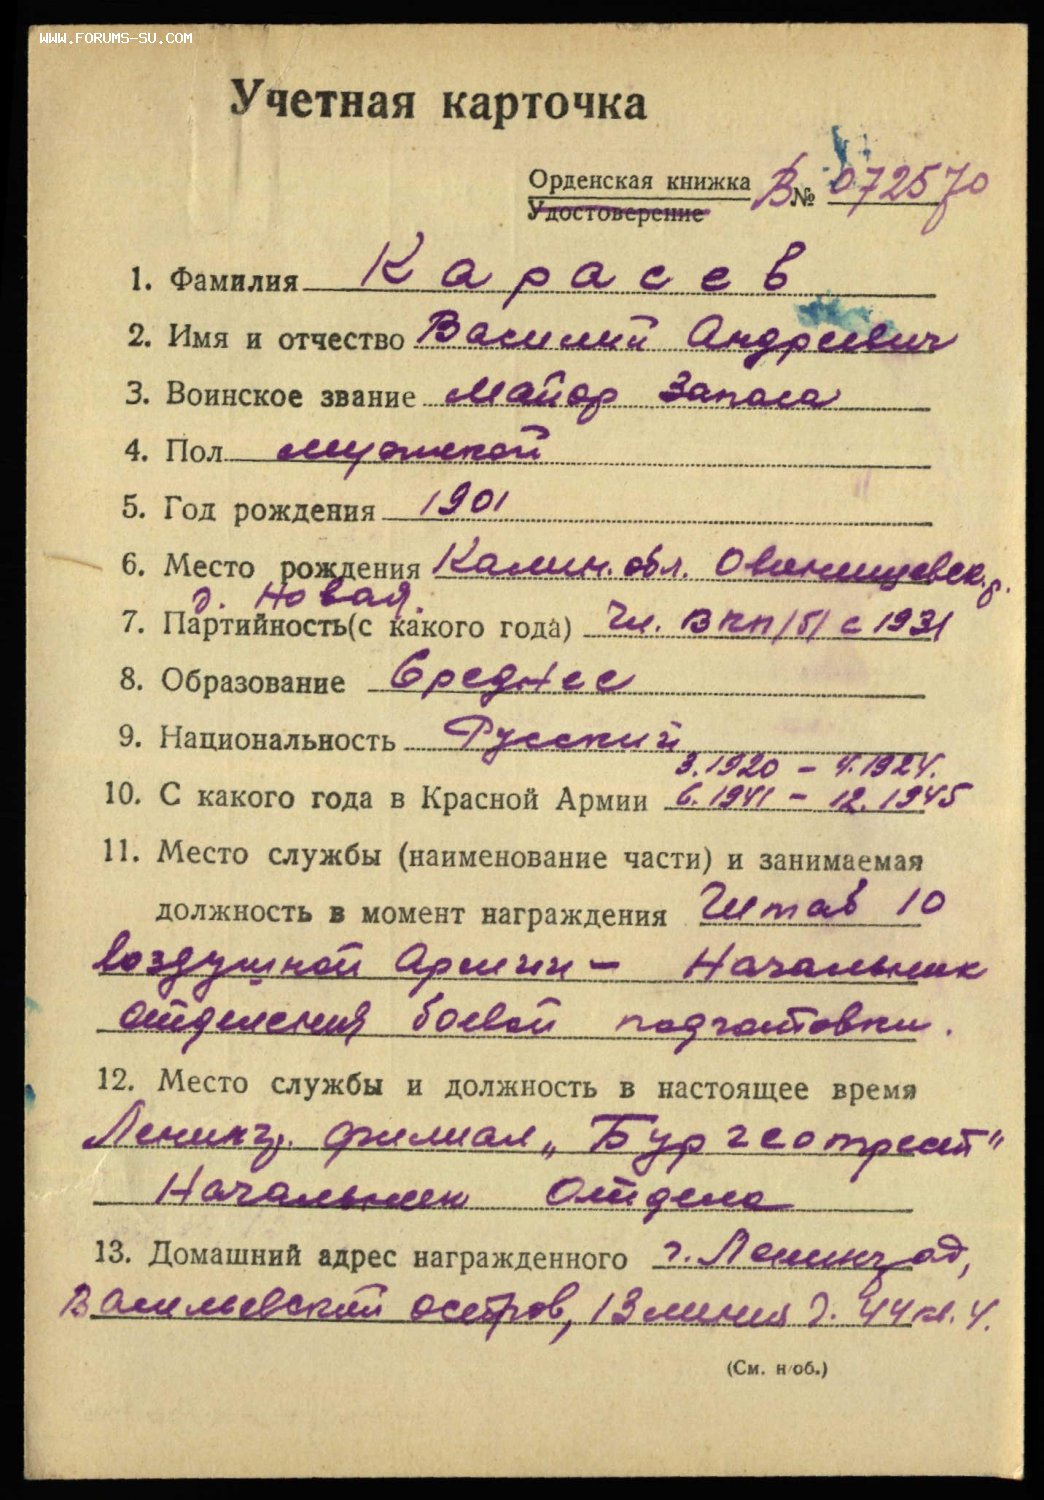 WWW.FORUMS-SU.COM
Учетная карточка
Орденская книжка В № 072570
Удостоверение
1. Фамилия Карасев
2. Имя и отчество Василий Андреевич
3. Воинское звание Майор Запаса
4. Пол мужской
5. Год рождения 1901
6. Место рождения Калин. обл. Овинищевск. р.
д. Новая.
7. Партийность (с какого года) Чл. ВКП/б/ с 1931
8. Образование Среднее
9. Национальность Русский
3.1920 – 4.1924.
10. С какого года в Красной Армии 6.1941 – 12.1945
11. Место службы (наименование части) и занимаемая
должность в момент награждения Штаб 10
воздушной Армии – Начальник
отделения боевой подготовки.
12. Место службы и должность в настоящее время
Ленингр. филиал „Бургеотрест"
Начальник Отдела
13. Домашний адрес награжденного г. Ленинград,
Васильевский остров, 13 линия д. 44 кв. 4.
(См. н/об.)